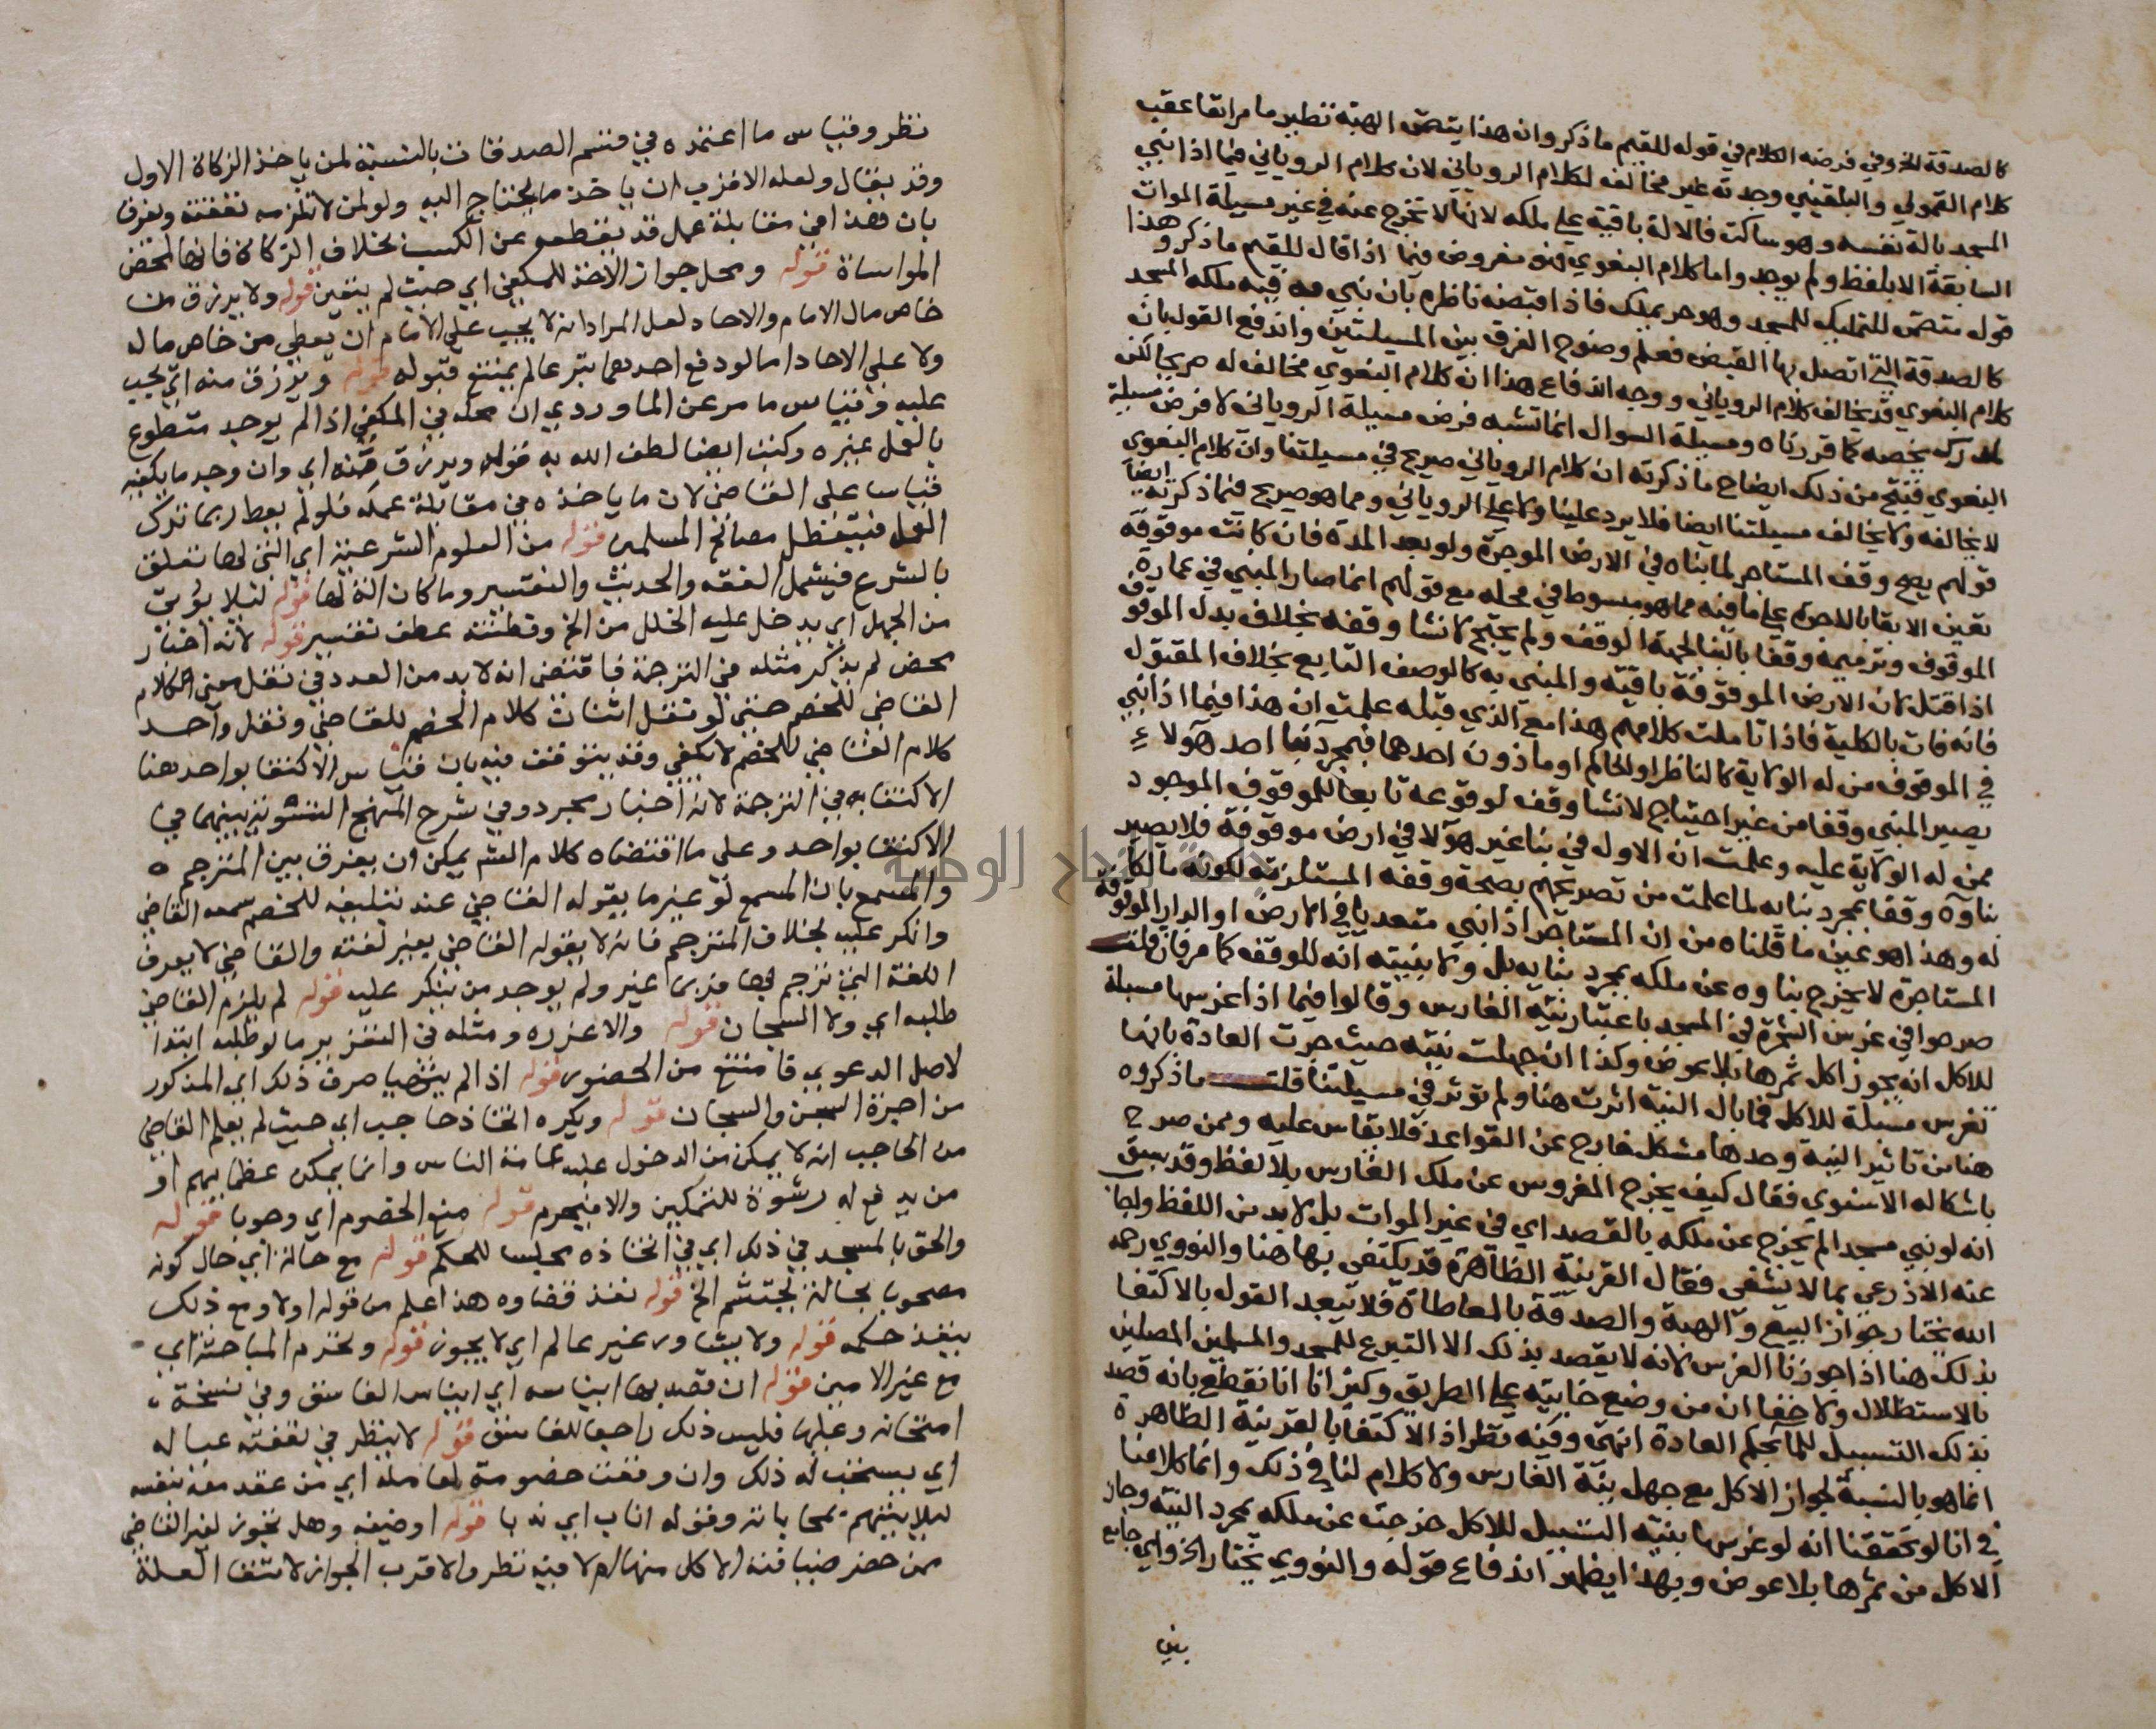 كالصدقة الخ وفي فرضه الكلام في قوله للقيم ما ذكر وان هذا يتضمن الهبة نظير ما مر انفا عقب
كلام القمولي والبلقيني وجدته غير مخالف لكلام الروياني لان كلام الروياني فيما اذا بني
المسجد بالة نفسه وهو ساكت فالالة باقية على ملكه لانها لا تخرج عنه في غير مسيلة الموات
السابقة الا بلفظ ولم يوجد واما كلام البغوي فهو مفروض فيما اذا قال للقيم ما ذكر وهذا
قوله متضمن للتمليك للمسجد وهو حر يملك فاذا قبضه ناظره بان بني به فيه ملكه المسجد
كالصدقة التي اتصل بها القبض فعلم وضوح الفرق بين المسيلتين واندفع القول بان
كلام البغوي قد يخالف كلام الروياني ووجه اندفاع هذا ان كلام البغوي مخالف له صريحا لكن
لمدرك يخصه كما قررناه ومسيلة السوال انما تشبه فرض مسيلة الروياني لا فرض مسيلة
البغوي فينتج من ذلك ايضاح ما ذكرته ان كلام الروياني صريح في مسيلتنا وان كلام البغوي
لا يخالفه ولا يخالف مسيلتنا ايضا فلا يرد علينا ولا على الروياني ومما هو صريح فيما ذكرته ايضا
قولهم يصح وقف المستاجر لما بناه في الارض الموجرة ولو بعد المدة فان كانت موقوفة
تعين الابقا بالاجرة على ما فيه مما هو مبسوط في محله مع قولهم انما صار المبني في عمارة
الموقوف وترميمه وقفا بالبنا لجهة الوقف ولم يحتج لانشا وقفه بخلاف بدل الموقوف
اذا قتل لان الارض الموقوفة باقية والمبني به كالوصف التابع بخلاف المقتول
فانه فات بالكلية فاذا تاملت كلامهم هذا مع الذي قبله علمت ان هذا فيما اذا بني
في الموقوف من له الولاية كالناظر او الحاكم او ماذون احدهما فبمجرد بنا احد هولاء
يصير المبني وقفا من غير احتياج لانشا وقف لوقوعه تابعا للموقوف الموجود
ممن له الولاية عليه وعلمت ان الاول في بنا غير هولا في ارض موقوفة فلا يصير
بناوه وقفا بمجرد بنايه لما علمت من تصريحهم بصحة وقفه المستلزمة لكونه مالكا
له وهذا هو عين ما قلناه من ان المستاجر اذا بني متعديا في الارض او الدار الموقوفة
المستاجرة لا يخرج بناوه عن ملكه بمجرد بنايه بل ولا بنيته انه للوقف كما مر فان قلت
صرحوا في غرس الشجرة في المسجد باعتبار نية الغارس وقالوا فيما اذا غرسها مسبلة
للاكل انه يجوز اكل ثمرها بلا عوض وكذا ان جهلت نيته حيث جرت العادة بانها
تغرس مسبلة للاكل فما بال النية اثرت هنا ولم توثر في مسيلتنا قلت ما ذكروه
هنا من تاثير النية وحدها مشكل خارج عن القواعد فلا يقاس عليه وممن صرح
باشكاله الاسنوي فقال كيف يخرج المغروس عن ملك الغارس بلا لفظ وقد سبق
انه لو بني مسجدا لم يخرج عن ملكه بالقصد اي في غير الموات بل لا بد من اللفظ واجاب
عنه الاذرعي بما لا تشفي فقال القرينة الظاهرة قد يكتفى بها هنا والنووي رحمه
الله يختار جواز البيع والهبة والصدقة بالمعاطاة فلا يبعد القول بالاكتفا
بذلك هنا اذا جوزنا الغرس لانه لا يقصد بذلك الا التبرع للمسجد والمسلمين المصلين
بالاستظلال ولا خفا ان من وضع خابية على الطريق وكيزانا انا نقطع بانه قصد
بذلك التسبيل للما بحكم العادة انتهى وفيه نظر اذ الاكتفا بالقرينة الظاهرة
انما هو بالنسبة لجواز الاكل مع جهل بنية الغارس ولا كلام لنا في ذلك وانما كلامنا
في انا لو تحققنا انه لو غرسها بنية التسبيل للاكل خرجت عن ملكه بمجرد النية وجاز
الاكل من ثمرها بلا عوض وبهذا يظهر اندفاع قوله والنووي يختار الخ واي جامع
بين
نظر وقياس ما اعتمده في قسم الصدقات بالنسبة لمن ياخذ الزكاة الاول
وقد يقال ولعله الاقرب ان ياخذ ما يحتاج اليه ولو لمن لا تلزمه نفقته ويفرق
بان هذا في مقابلة عمل قد يقطعه عن الكسب بخلاف الزكاة فانها لمحض
المواساة قوله ومحل جواز الاخذ للمكفي اي حيث لم يتعين قوله ولا يرزق من
خاص مال الامام والاحاد لعل المراد انه لا يجب على الامام ان يعطي من خاص ماله
ولا على الاحاد اما لو دفع احدهما تبرعا لم يمتنع قبوله قوله ويرزق منه اي يجب
عليه وقياس ما مر عن الماوردي ان محله في المكفي اذا لم يوجد متطوع
بالعمل غيره وكتب ايضا لطف الله به قوله ويرزق منه اي وان وجد ما يكفيه
قياسا على القاضي لان ما ياخذه في مقابلة عمله فلو لم يعط ربما ترك
العمل فيتعطل مصالح المسلمين قوله من العلوم الشرعية اي التي لها تعلق
بالشرع فيشمل الفقه والحديث والتفسير وما كان الة لها قوله ليلا يوتي
من الجهل اي يدخل عليه الخلل من الخ وفطنته عطف تفسير قوله لانه اخبار
محض لم يذكر مثله في الترجمة فاقتضى انه لا بد من العدد في نقل معنى الكلام
القاضي للخصم حتى لو نقل اثنان كلام الخصم للقاضي ونقل واحد
كلام القاضي للخصم لا يكفي وقد يتوقف فيه بان قياس الاكتفا بواحد هنا
الاكتفا به في الترجمة لانه اخبار مجرد وفي شرح المنهج التسوية بينهما في
الاكتفا بواحد وعلى ما اقتضاه كلام الشم يمكن ان يفرق بين المترجم
والمسمع بان المسمع لو غير ما يقوله القاضي عند تبليغه للخصم سمعه القاضي
وانكر عليه بخلاف المترجم فانه لا يقوله القاضي بغير لغته والقاضي لا يعرف
اللغة التي ترجم بها فربما غير ولم يوجد من ينكر عليه قوله لم يلزم القاضي
طلبه اي ولا السجان قوله والا عزره ومثله في التعزير ما لو طلبه ابتدا
لاصل الدعوي فامتنع من الحضور قوله اذا لم يتهيا صرف ذلك اي المذكور
من اجرة السجن والسجان قوله ويكره اتخاذ حاجب اي حيث لم يعلم القاضي
من الحاجب انه لا يمكن من الدخول عليه عامة الناس وانما يمكن عظماءهم او
من يدفع له رشوة للتمكين والا فيحرم قوله منع الخصوم اي وجوبا قوله
والحق بالمسجد في ذلك اي في اتخاذه مجلسا للحكم قوله مع حالة اي حال كونه
مصحوبا بحالة يجتنبهم الخ قوله نفذ قضاوه هذا علم من قوله اولا ومع ذلك
ينفذ حكمه قوله ولا يشاور غير عالم اي لا يجوز قوله وتحرم المباحثة اي
مع غير الامين قوله ان قصد بها ايناسه اي ايناس الفاسق وفي نسخة
امتحانه وعليها فليس ذلك راجعا للفاسق قوله لا ينظر في نفقة عياله
اي يستحب له ذلك وان وقعت خصومة لعامله اي من عقد معه بنفسه
ليلا يتهم بمحاباته وقوله اناب اي ندبا قوله او ضيفه وهل يجوز لغير القاضي
ممن حضر ضيافته الاكل منها ام لا فيه نظر والاقرب الجواز لانتفا العلة